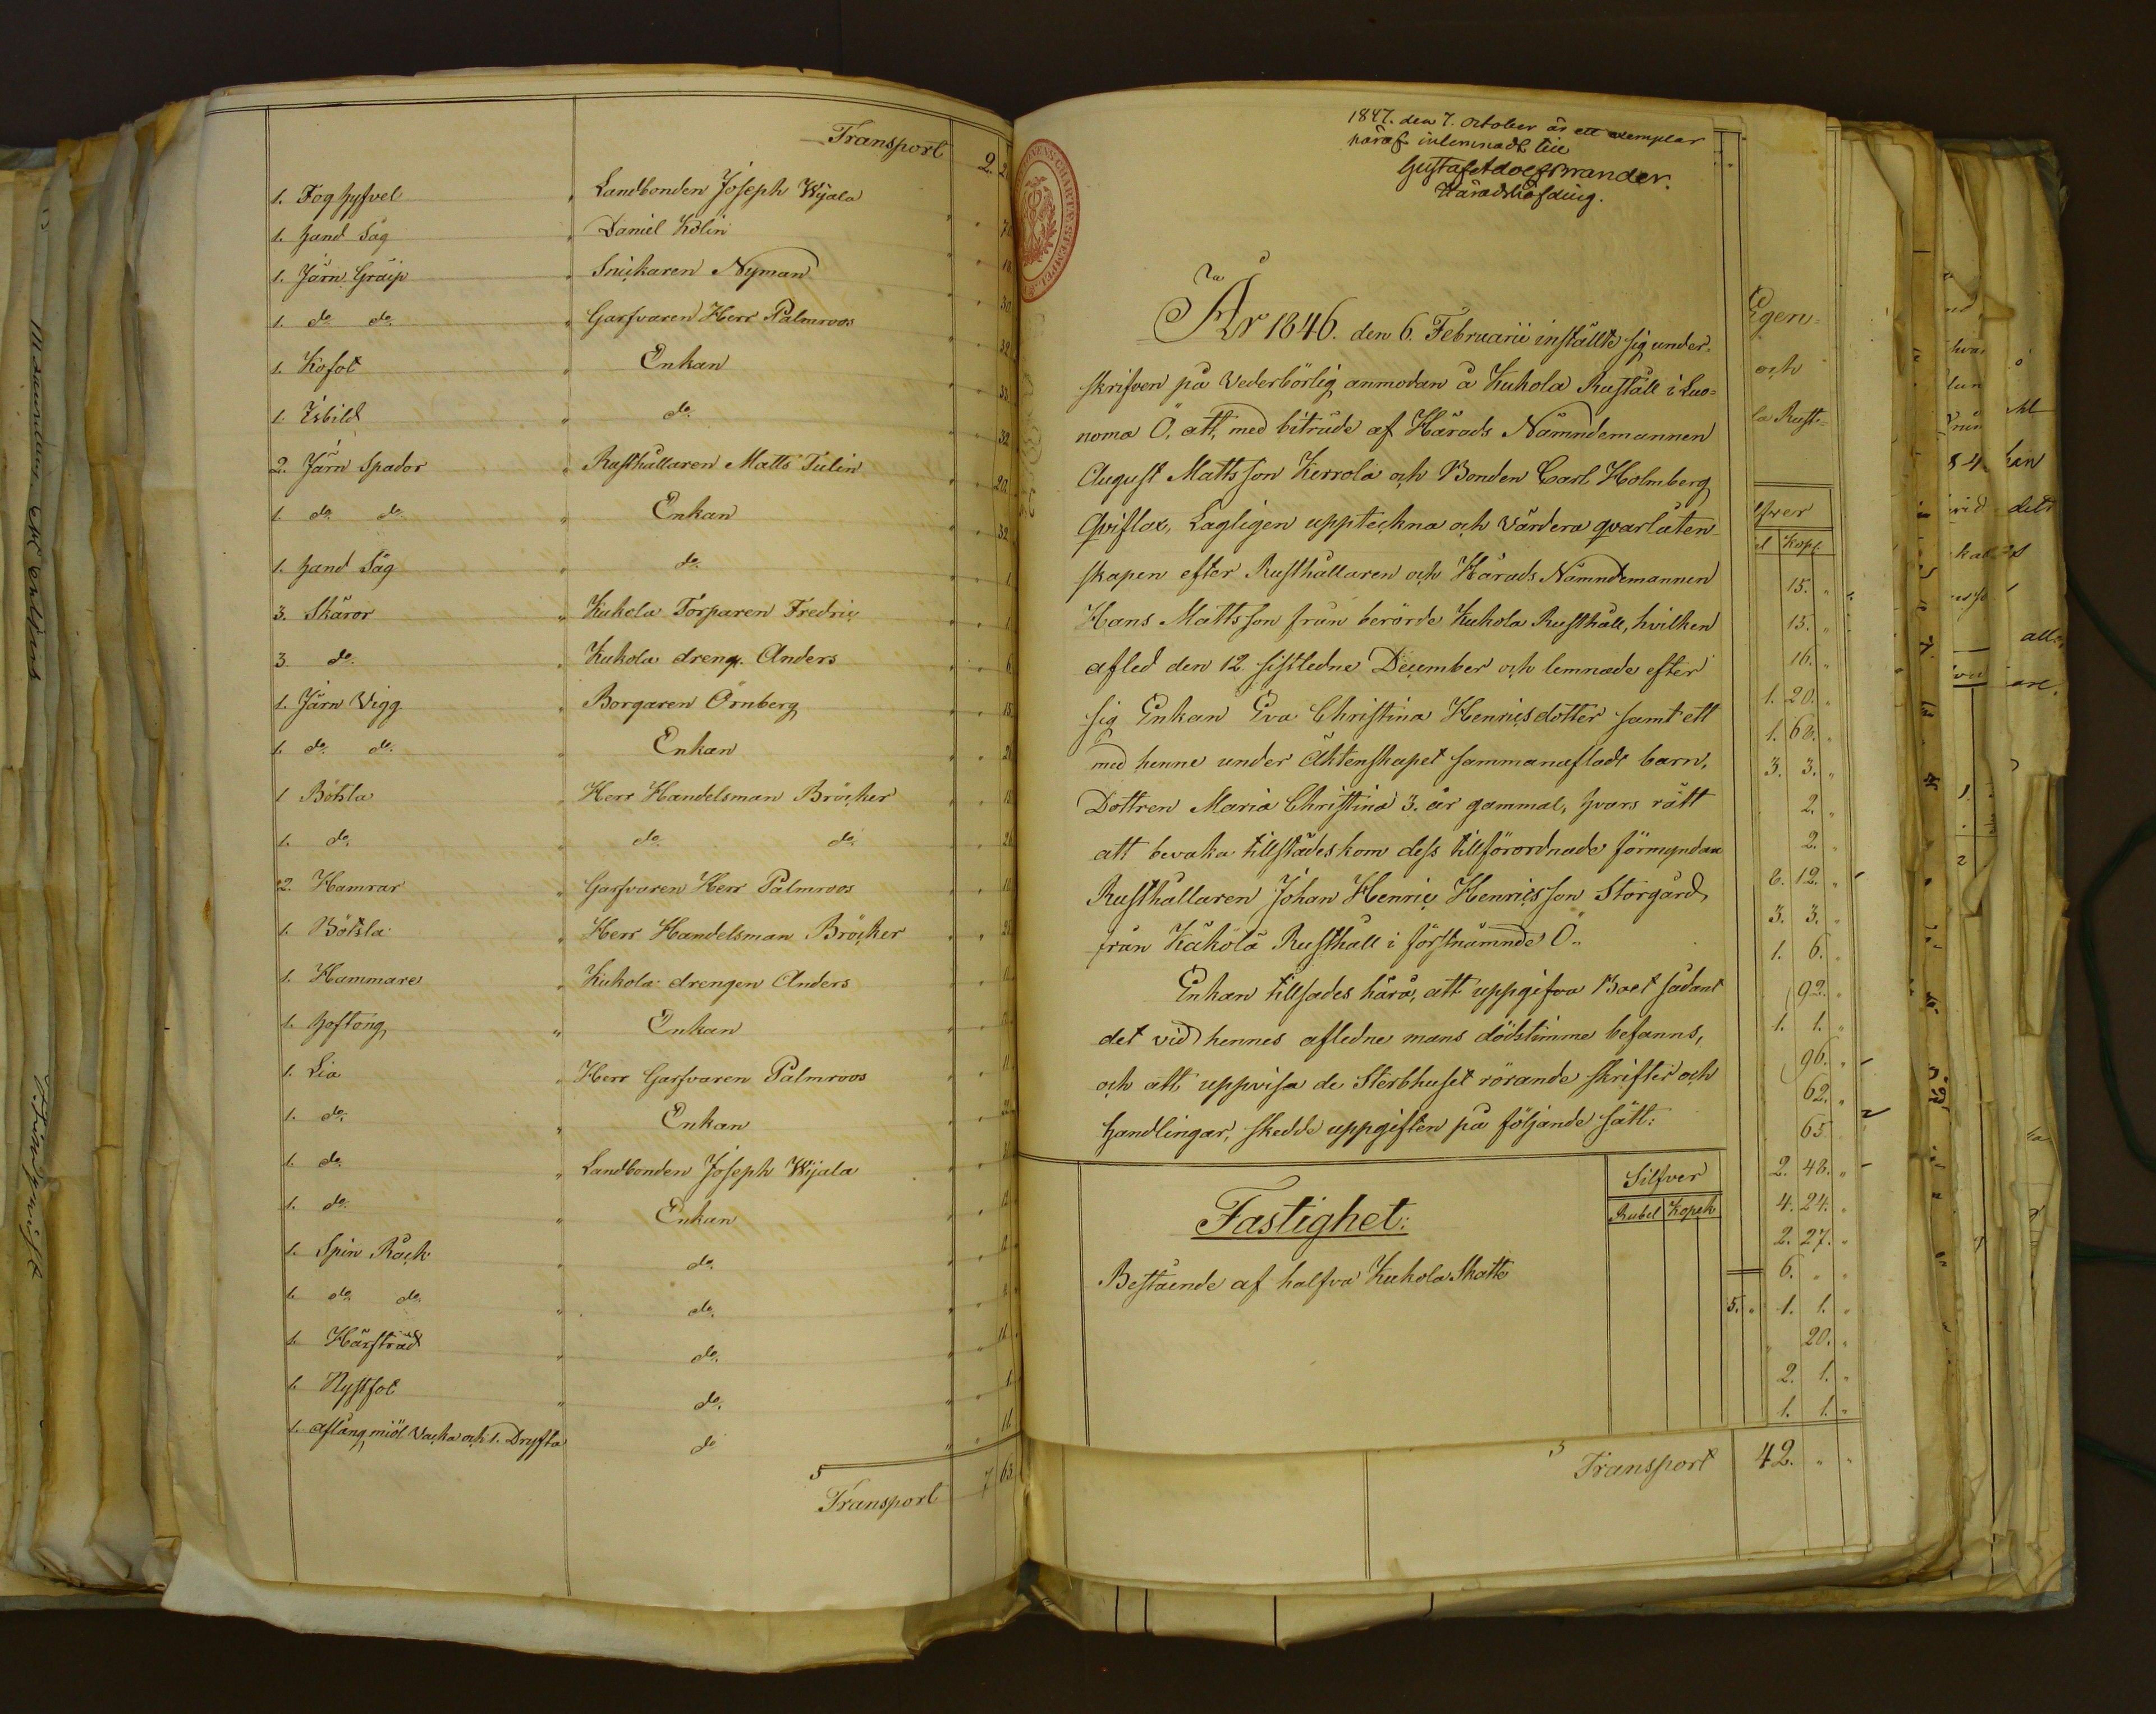 Transport 2. 2.
1. Foghyfvel " Landbonden Joseph Wijala
1. hand Såg " Daniel Kolin
1. Järn Graip " Snickaren Nyman
1. do do " Garfvaren Herr Palmroos
1. Kofot " Enkan
1. Isbild " do
2. Järn Spador " Rusthållaren Matts Tulin
1. do do " Enkan
1. hand Såg " do
3. Skäror " Kukola Torparen Fredric
3 do " Kukola dreng. Anders
1. Järn Vigg " Borgaren Örnberg
1. do do " Enkan
1 Bötsla " Herr Handelsman Bröcker
1. do " do do
2. Hamrar " Garfvaren Herr Palmroos
1. Bötsla " Herr Handelsman Bröcker
1. Hammare " Kukola drengen Anders
1. hoftong " Enkan
1. Lia " Herr Garfvaren Palmroos
1. do " Enkan
1. do " Landbonden Joseph Wijala
1. do " Enkan
1. Spin Råck " do
1. do do " do
1. Härfträd " do
1. Nystfot " do
1. aflång miöl Vacka och 1. Dryfta do
Transport 7 63
1847. den 7. October är ett exemplar
häraf inlemnadt till
Gustaf Adolf Brander.
Häradshöfding.
År 1846. den 6. Februarii inställte sig under-
skrifven på Vederbörlig anmodan å Kukola Rusthåll i Luo-
noma Ö, att, med biträde af Härads Nämndemannen
August Mattsson Kerrola och Bonden Carl Holmberg
Qviflax, Lagligen uppteckna och Värdera qvarlåten-
skapen efter Rusthållaren och Härads Nämndemannen
Hans Mattsson från berörde Kukola Rusthåll, hvilken
afled den 12 sistledne December och lemnade efter
sig Enkan Eva Christina Henricsdotter samt ett
med henne under Äktenskapet sammanafladt barn,
Dottren Maria Christina 3. år gammal, hvars rätt
att bevaka tillstädes kom dess tillförordnade förmyndare
Rusthållaren Johan Henric Henricsson Storgård
från Käkölä Rusthåll i förstnämnde Ö.
Enkan tillsades härå, att uppgifva Boet sådant
det vid hennes afledne mans dödstimme befanns,
och att uppvisa de Sterbhuset rörande skrifter och
handlingar, skedde uppgiften på följande sätt:
Silfver
Fastighet: Rubel Kopek
Bestående af halfva Kukola Skatte
Egen-
och
la Rust-
lfver
el Kop.
15.
15.
16.
1. 20.
1. 68.
3. 3.
2.
2.
8. 12.
3. 3.
1. 6.
92.
1. 1.
96.
62.
65.
2. 48.
4. 24.
2. 27.
6.
5. 1. 1.
20.
2. 1.
1. 1.
Transport 42. " "